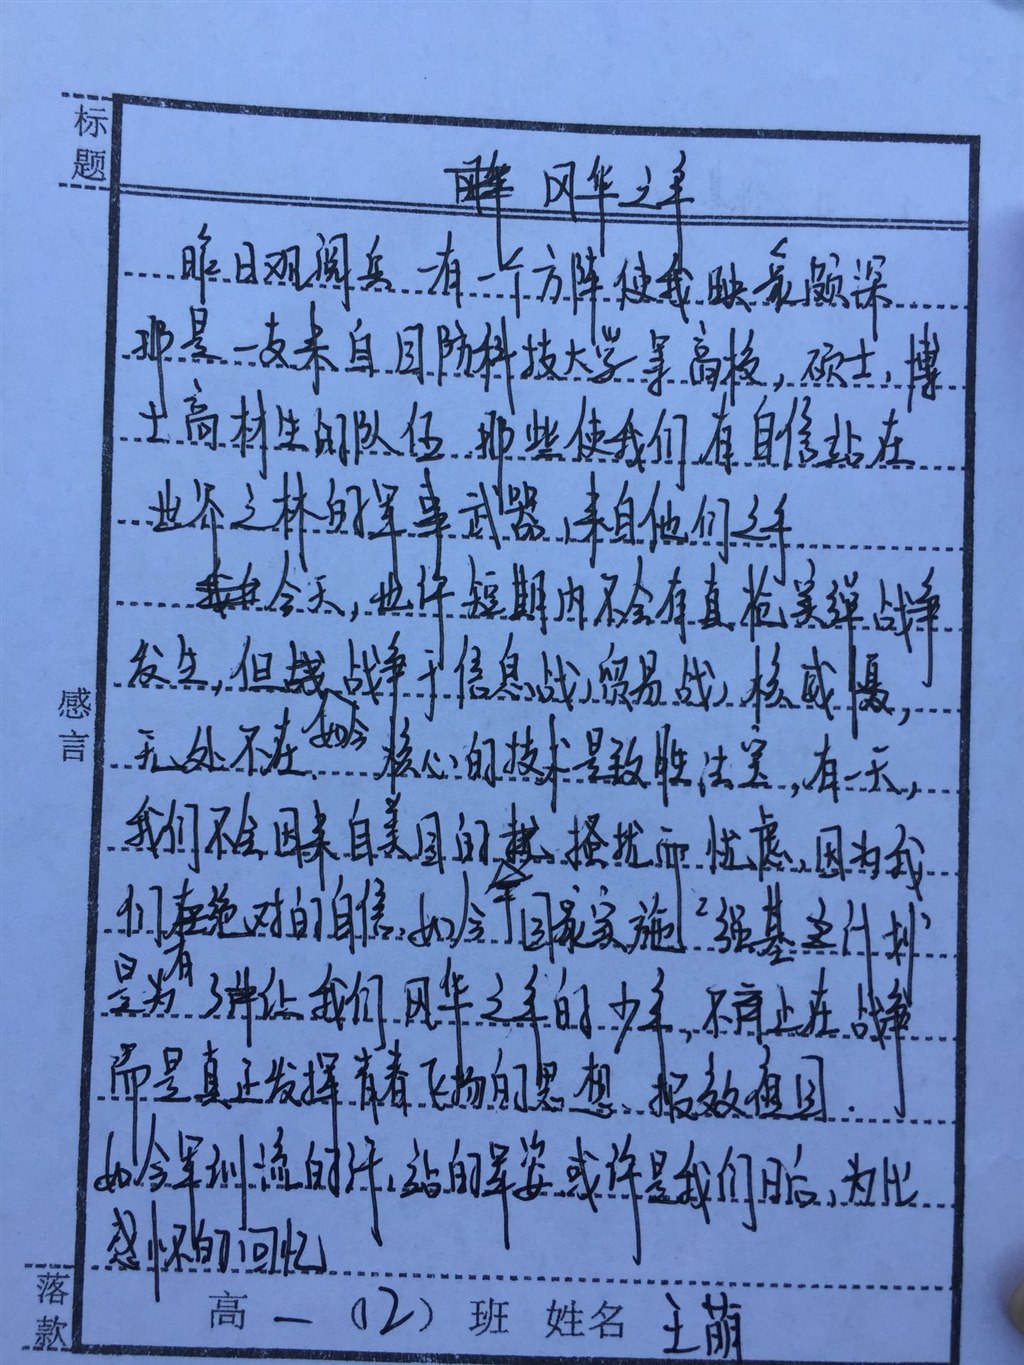 标题
风华之年
昨日观阅兵 一有一个方阵使我映象颇深
那是一支来自国防科技大学等高校,硕士,博
士高材生的队伍 那些使我们有自信站在
世界之林的军事武器,来自他们之手
今天,也许短期内不会有真枪实弹战争
发生,但战争于信息战,贸易战,核威慑,
无处不在.如今核心的技术是致胜法宝,有一天,
我们不会因来自美国的搔扰而忧虑,因为我
们有绝对的自信.如今年国家实施“强基之计划”
是为了让我们风华之年的少年,不再止在战争
而是真正发挥青春飞扬的思想、报效祖国.
如今军训流的汗,站的军姿或许是我们日后,为此
感怀的回忆
感言
落款
高一(12)班 姓名 王萌